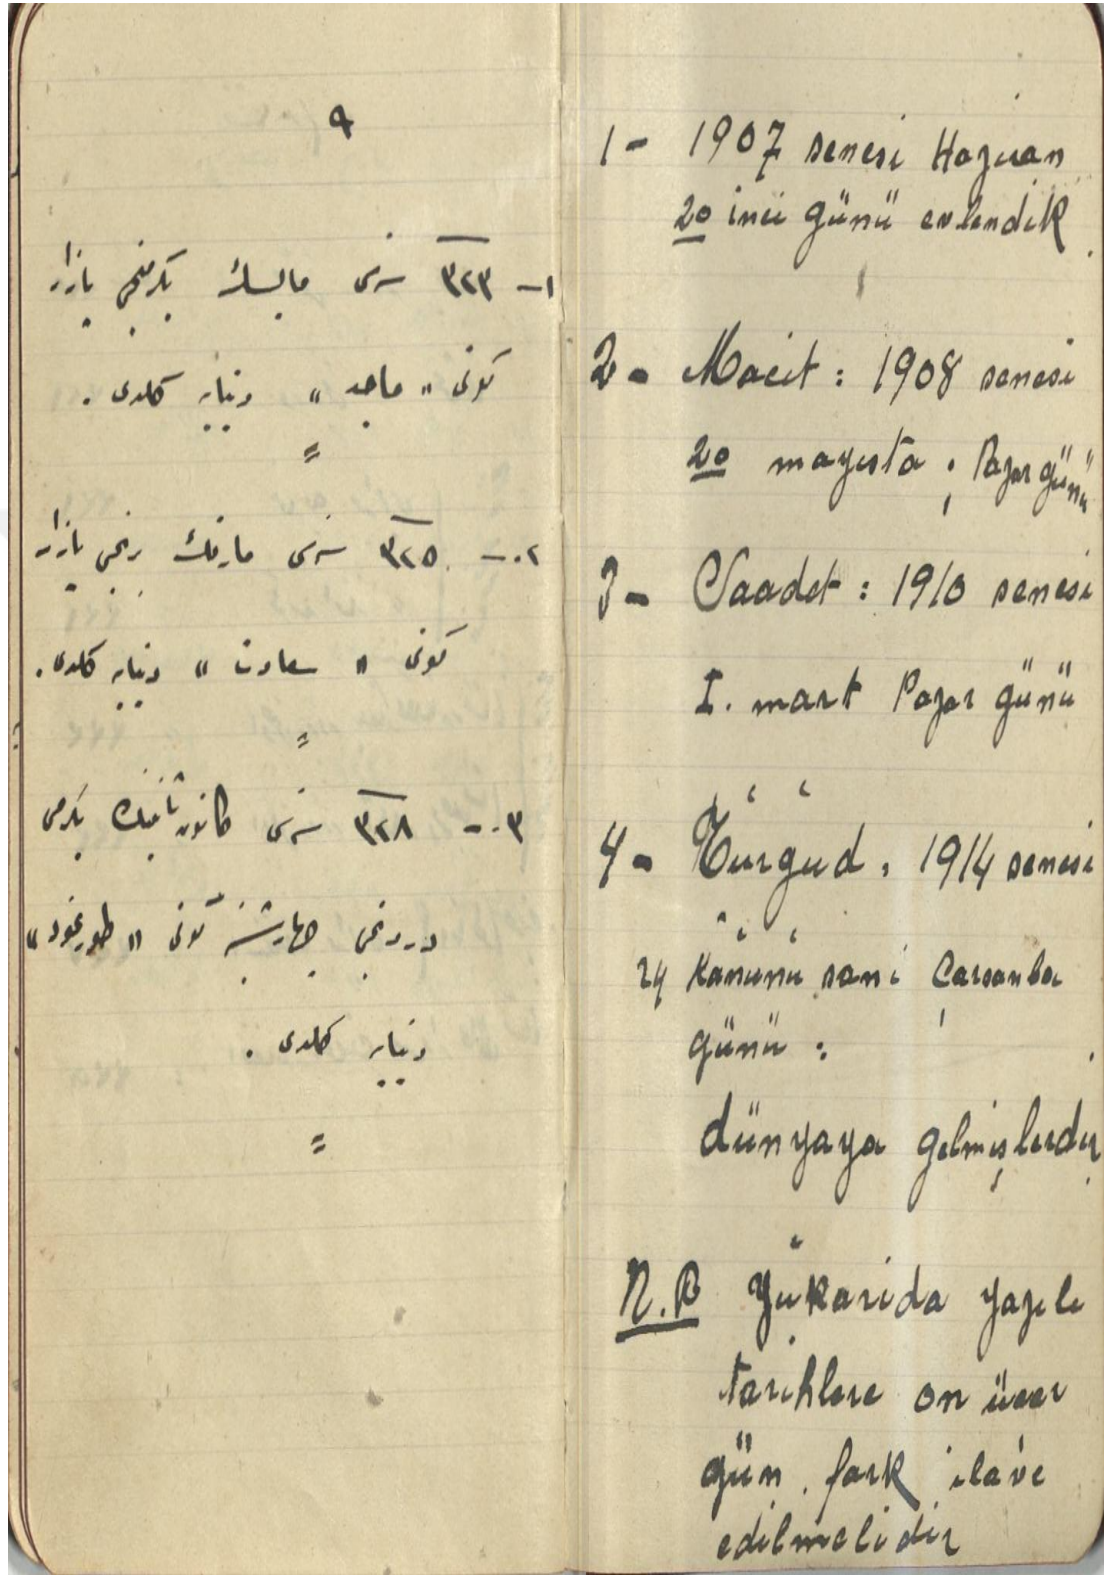 ٩
١- ٣٢٣ سنه‌سى مايسك يكرمنجى پازار
كونى « ماجد » دنيايه كلدى .
٢- ٣٢٥ سنه‌سى مارتك برنجى پازار
كونى « سعادت » دنيايه كلدى .
٣- ٣٢٨ سنه‌سى كانون ثانينك يكرمى
دردنجى چهارشنبه كونى « طورغود »
دنيايه كلدى .
1- 1907 senesi Haziran
20 inci günü evlendik
2- Macit : 1908 senesi
20 mayısta ; Pazar günü
3- Saadet : 1910 senesi
I. mart Pazar günü
4- Turgud : 1914 senesi
24 Kânunu sani Çarşanba
günü :
dünyaya gelmişlerdir
N.B Yukarıda yazılı
tarihlere on üçer
gün fark ilâve
edilmelidir